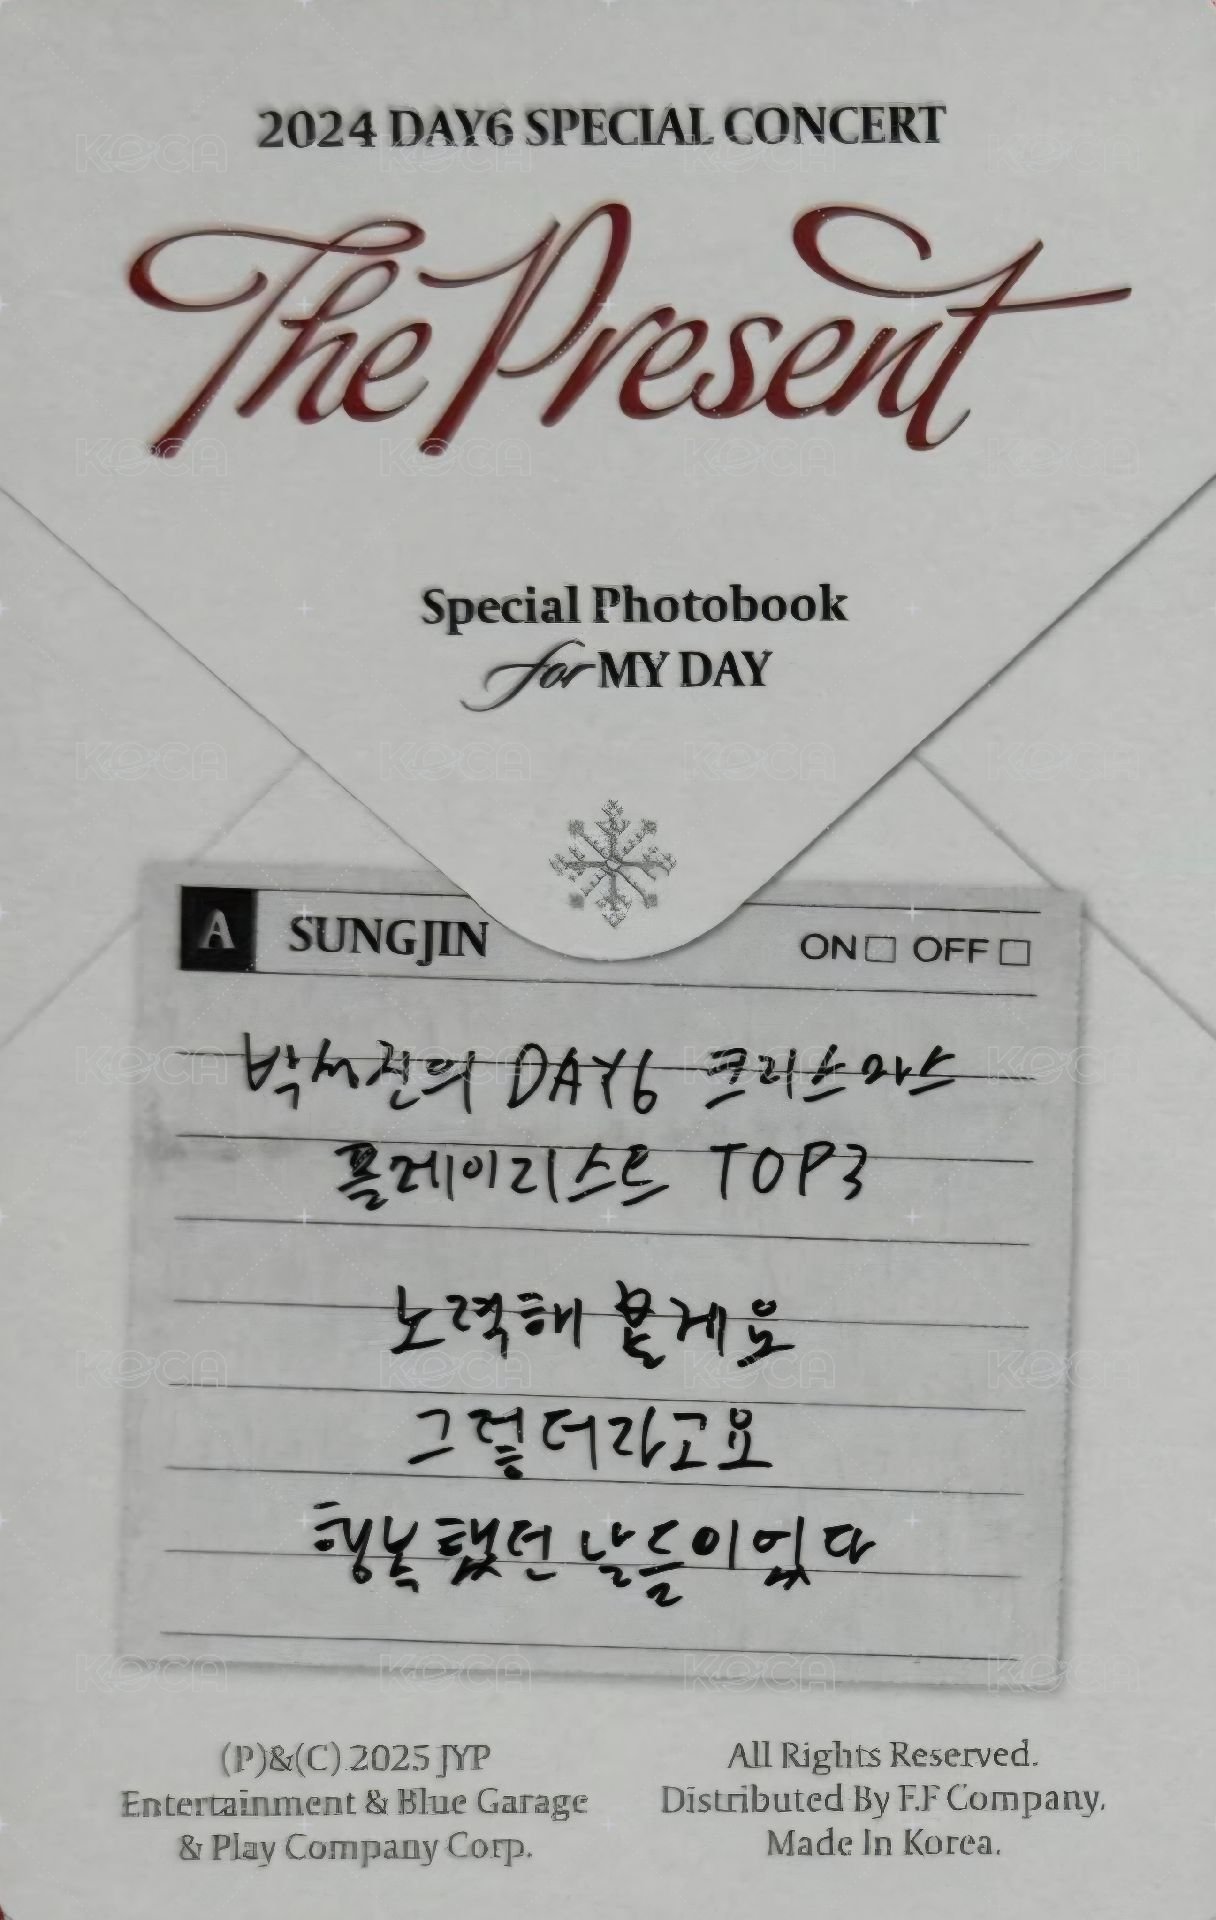 2024 DAY6 SPECIAL CONCERT
The Present
Special Photobook
for MY DAY
A SUNGJIN ON OFF
박성진의 DAY6 크리스마스
플레이리스트 TOP3
노력해 볼게요
그렇더라고요
행복했던 날들이었다
(P)&(C) 2025 JYP
Entertainment & Blue Garage
& Play Company Corp.
All Rights Reserved.
Distributed By F.F Company.
Made In Korea.
KOCA